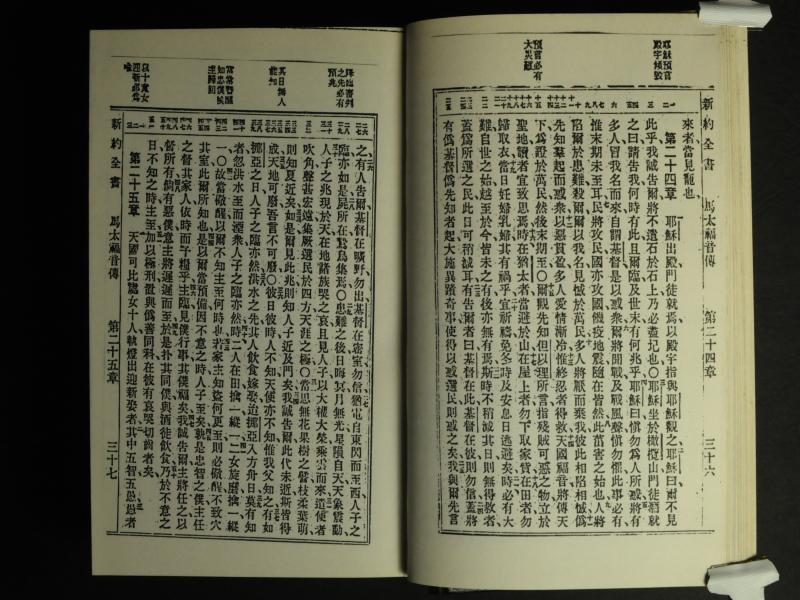 新約全書 馬太福音傳 第二十四章 三十六
耶穌預言殿宇傾敗
預言必有大災難
來者當見寵也
第二十四章 耶穌出殿門徒就焉以殿宇指與耶穌觀之耶穌曰爾不見
此乎我誠告爾將不遺石於石上乃必盡圮也〇耶穌坐於橄欖山門徒潛就
之曰請告我何時有此且爾臨及世末有何兆乎耶穌曰慎勿為人所惑將有
多人冒我名而來自謂基督是以惑衆爾將聞戰及戰風聲慎勿懼此事必有
惟末期未至耳民將攻民國亦攻國饑疫地震隨在皆然此菑害之始也人將
陷爾於患難殺爾爾以我名見憾於萬民多人將厭而棄我彼此相陷相憾僞
先知羣起而惑衆以惡貫盈多人愛情漸冷惟終忍者得救天國福音將傳天
下為證於萬民然後末期至〇爾觀先知但以理所言指殘賊可惡之物立於
聖地讀者宜致思焉時在猶太者當遯於山在屋上者勿下取家貨在田者勿
歸取衣當日妊婦乳婦其有禍乎宜祈禱免冬時及安息日逃避矣時必有大
難自世之始越至於今皆未之有後亦無有焉斯時不稍減其日則無得救者
蓋為所選之民此日可稍減耳有告爾者曰基督在此基督在彼則勿信蓋將
有僞為基督僞為先知者起大施異蹟奇事使得以惑選民則惑之矣我與爾先言
新約全書 馬太福音傳 第二十五章 三十七
降臨審判之先必有預兆
其日無人能知
當常警醒如忠僕候主歸回
以十童女迎新郎為喻
之有人告爾基督在曠野勿出基督在密室勿信猶電自東閃而至西人子之
臨亦如是屍所在鷲鳥集焉〇患難之後日晦冥月無光星隕自天天象震動
人子之兆現於天在地諸族哭之哀且見人子以大權大榮乘雲而來遣使者
吹角聲甚宏遠集厥選民於四方天涯之極〇當思無花果樹之譬枝柔葉萌
則知夏近矣如是爾見此兆則知人子近及門矣我誠告爾此代未逝斯皆得
成天地可廢吾言不可廢〇彼日彼時人不知天使亦不知惟我父知之有如
挪亞之日人子之臨亦然洪水之先其人飲食嫁娶迨挪亞入方舟日莫有知
者忽洪水至而湮衆人子之臨亦然時二人在田擒一縱一二女旋磨擒一縱
一〇故當儆醒以爾不知主至何時也若家主知盜何更至則必儆醒不致穴
其室此爾所知也是以爾當預備因不意之時人子至矣孰是忠智之僕主任
之督其家人依時而予糧乎主臨見僕行事其僕福矣我誠告爾主將任之以
督所有倘有惡僕意主將遲遲而至於是扑其同僕與酒徒飲食乃於不意之
日不知之時主至加以極刑置與僞善同科在彼有哀哭切齒者矣
第二十五章 天國可比處女十人執燈出迎新娶者其中五智五愚愚者